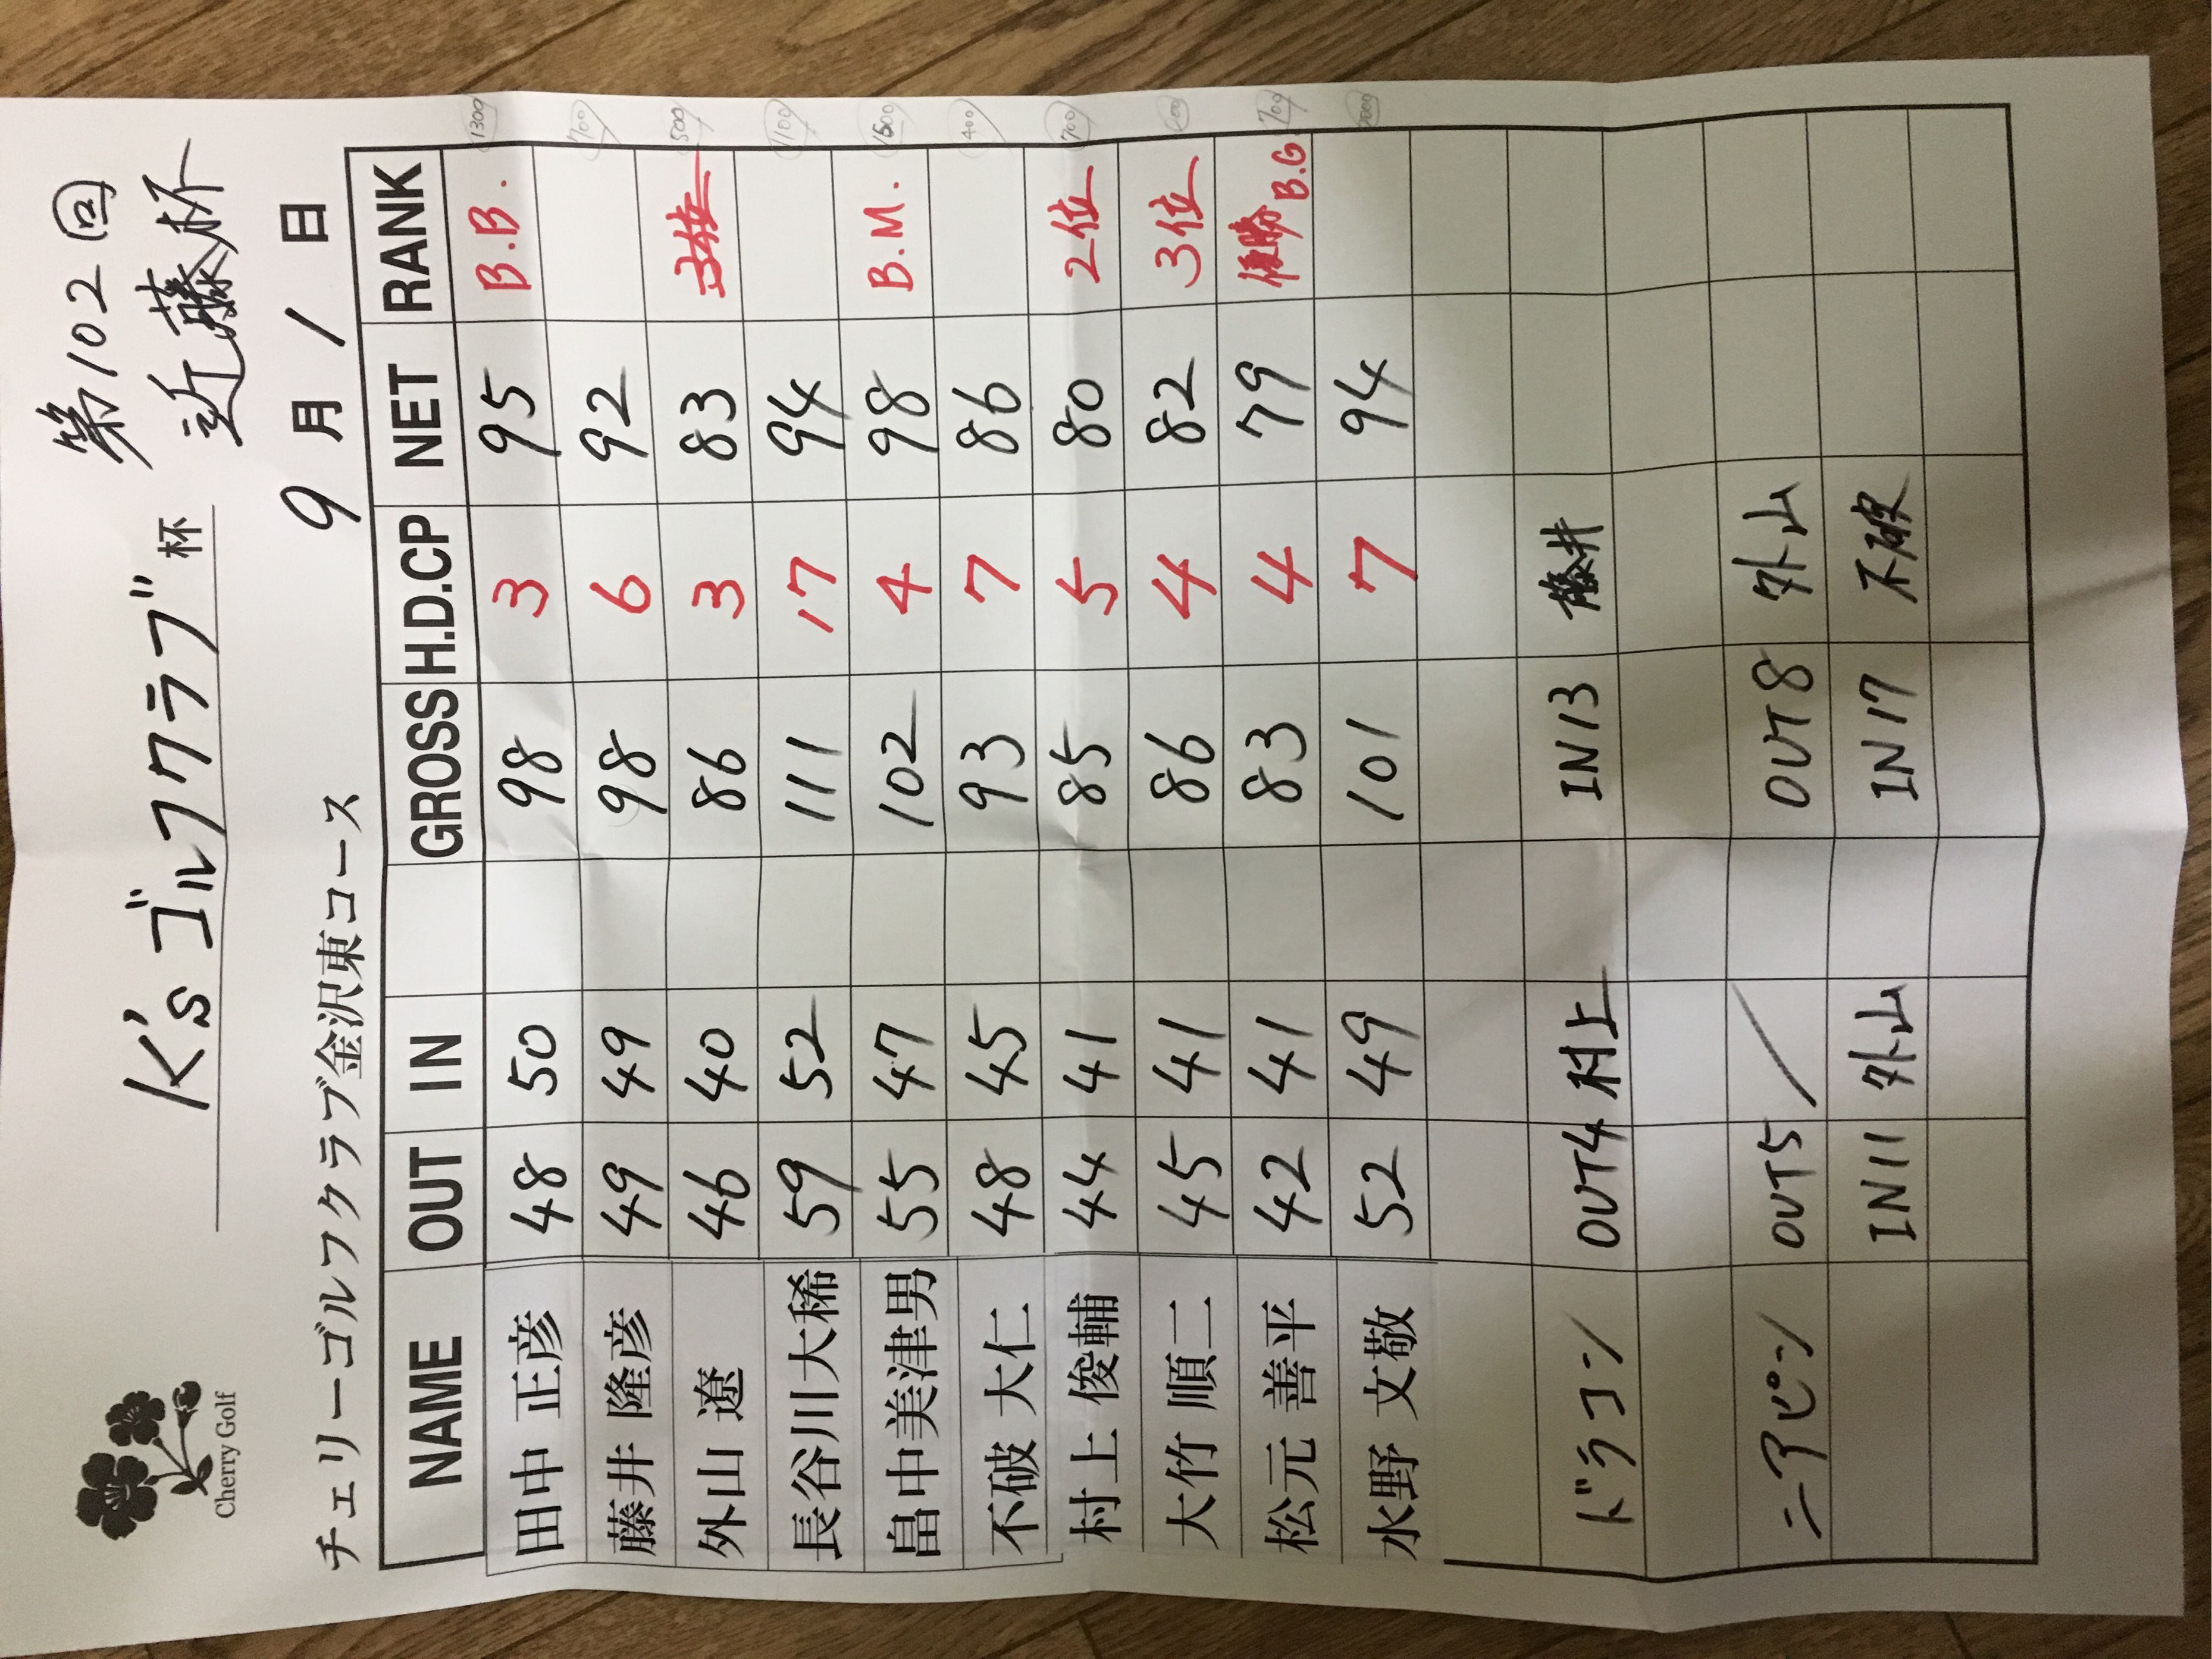 Cherry Golf
K'sゴルフクラブ 杯 第102回
近藤杯
チェリーゴルフクラブ金沢東コース 9月1日
NAME OUT IN GROSS H.D.CP NET RANK
田中 正彦 48 50 98 3 95 B.B. 1300
藤井 隆彦 49 49 98 6 92
外山 遼 46 40 86 3 83 3位 500
長谷川大稀 59 52 111 17 94 1100
畠中美津男 55 47 102 4 98 B.M. 1500
不破 大仁 48 45 93 7 86 400
村上 俊輔 44 41 85 5 80 2位 700
大竹 順二 45 41 86 4 82 3位
松元 善平 42 41 83 4 79 優勝 B.G 700
水野 文敬 52 49 101 7 94
ドラコン OUT4 村上 IN13 藤井
ニアピン OUT5 / OUT8 外山
IN11 外山 IN17 不破